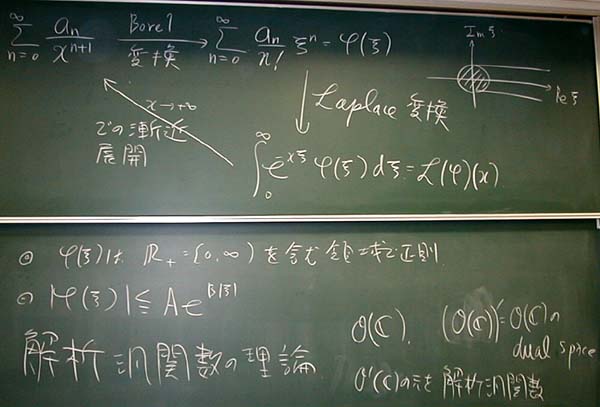 ∞∑n=0 an/x^{n+1} Borel変換→ ∞∑n=0 an/n! ξ^n = φ(ξ)
Im ξ
Re ξ
x→+∞
での漸近
展開
Laplace 変換
∫_0^∞ e^{-xξ} φ(ξ) dξ = L(φ)(x)
⊙ φ(ξ)は R+ = [0, ∞) を含む領域で正則
⊙ |φ(ξ)| ≦ A e^{B|ξ|}
解析汎関数の理論
O(C). (O(C))' = O(C)の
dual space
O'(C)の元を解析汎関数